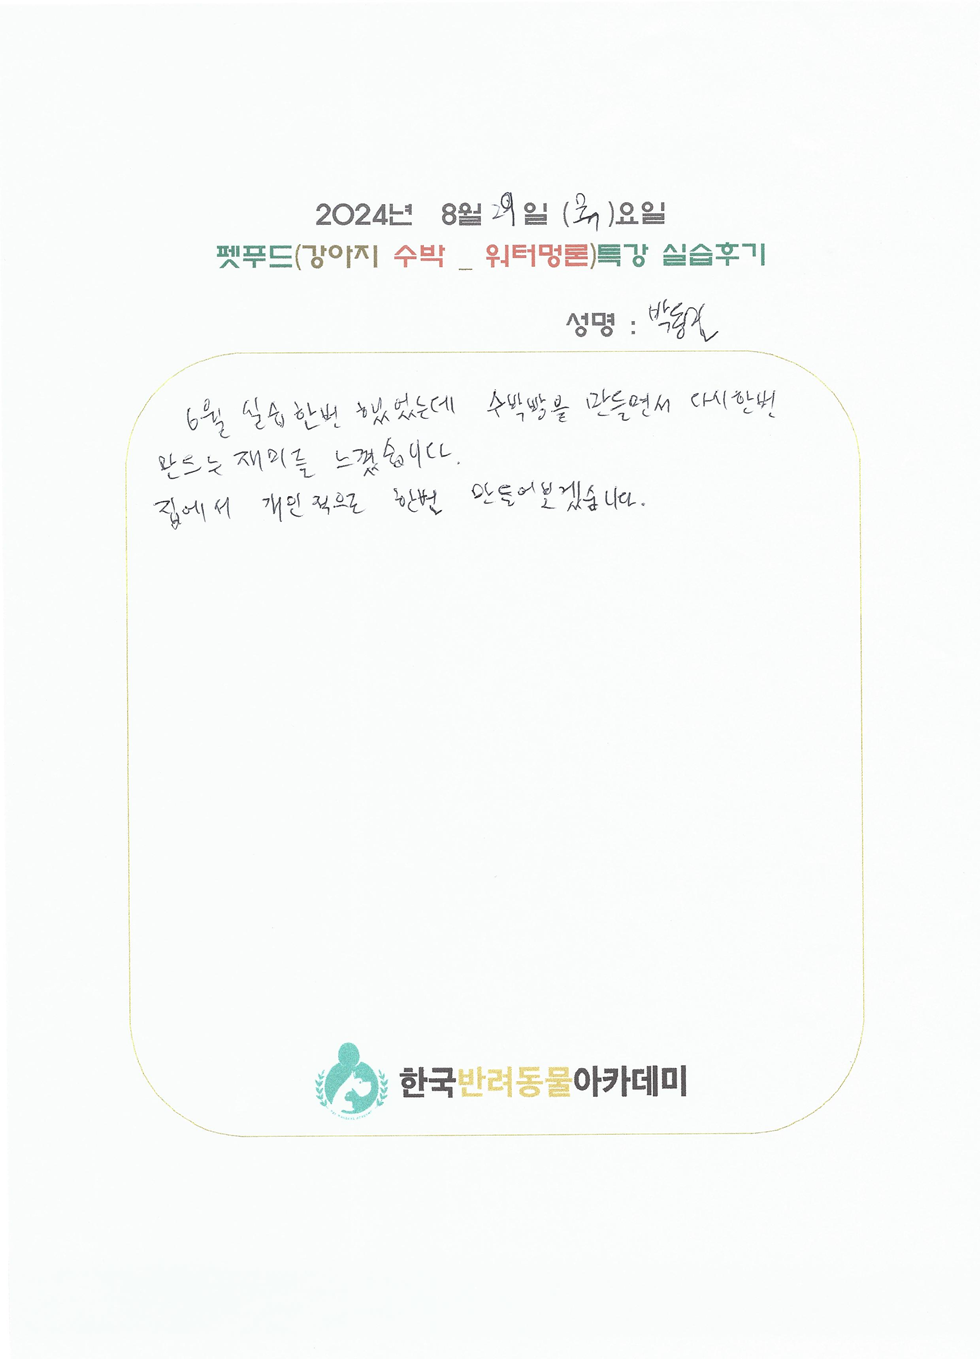 2024년 8월 29일 (목)요일
펫푸드(강아지 수박 _ 워터멍론)특강 실습후기
성명 : 박동길
6월 실습 한번 했었는데 수박빵을 만들면서 다시한번
만드는 재미를 느꼈습니다.
집에서 개인적으로 한번 만들어보겠습니다.
한국반려동물아카데미